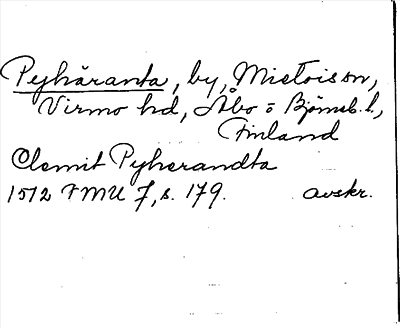 Pyhäranta, by, Mietois sn,
Virmo hd, Åbo = Björneb. l.,
Finland
Clemit Pyherandta
1512 FMU 7, s. 179. avskr.